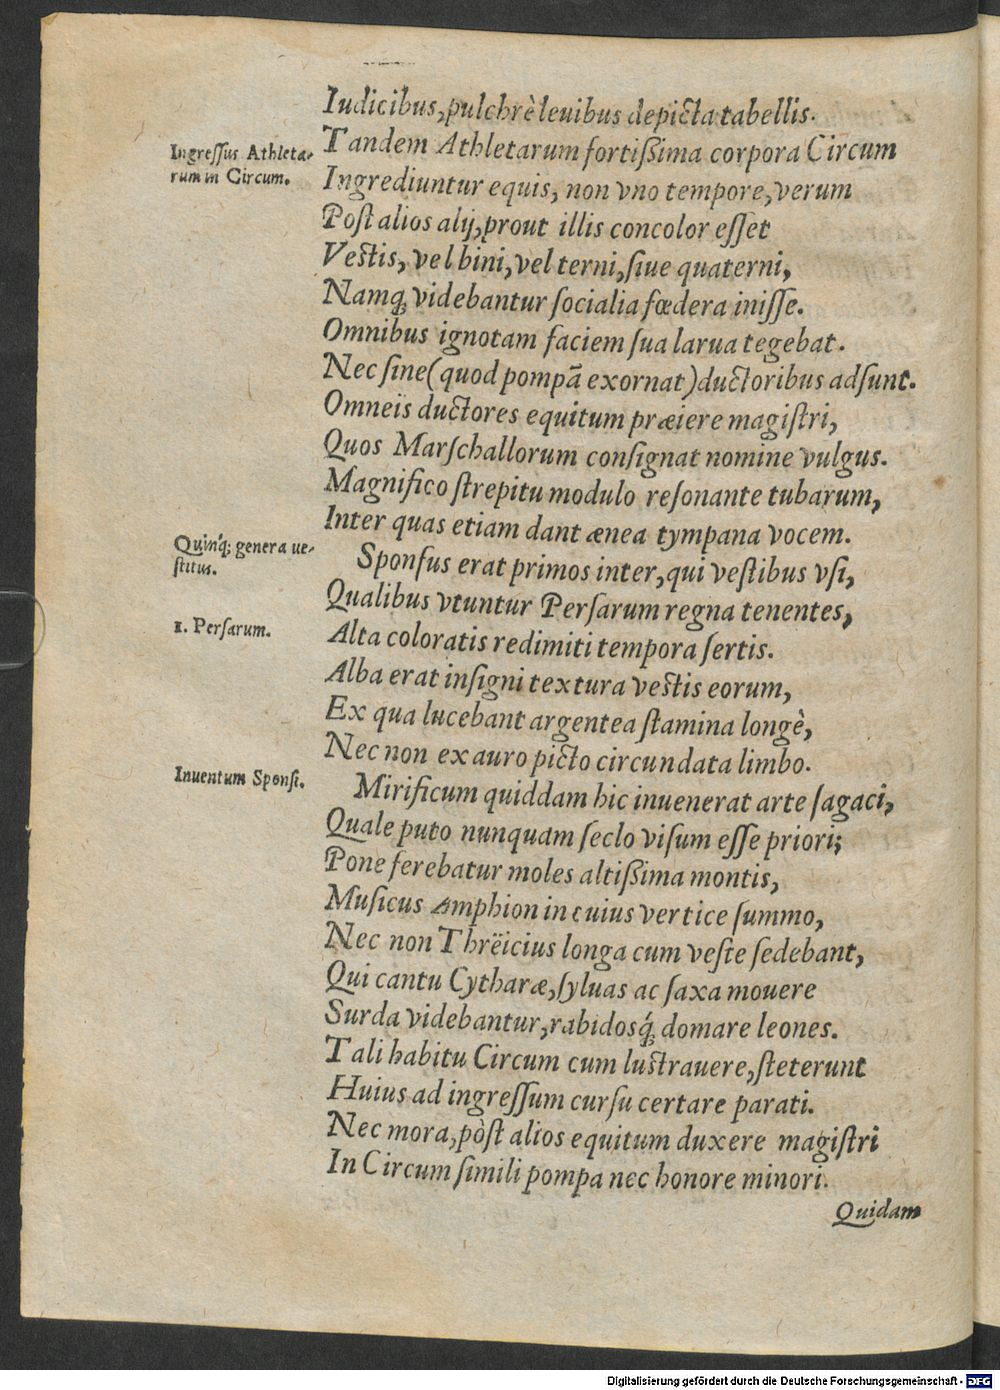 Iudicibus, pulchrè leuibus depicta tabellis.
Ingreſſus Athleta-
rum in Circum.
Tandem Athletarum fortiſsima corpora Circum
Ingrediuntur equis, non vno tempore, verum
Poſt alios alij, prout illis concolor eſſet
Veſtis, vel bini, vel terni, ſiue quaterni,
Namq́; videbantur ſocialia fœdera iniſſe.
Omnibus ignotam faciem ſua larua tegebat.
Nec ſine (quod pompā exornat) ductoribus adſunt.
Omneis ductores equitum præiere magiſtri,
Quos Marſchallorum conſignat nomine vulgus.
Magnifico ſtrepitu modulo reſonante tubarum,
Inter quas etiam dant ænea tympana vocem.
Quinq́; genera ue-
ſtitus.
Sponſus erat primos inter, qui veſtibus vſi,
Qualibus vtuntur Perſarum regna tenentes,
1. Perſarum.
Alta coloratis redimiti tempora ſertis.
Alba erat inſigni textura veſtis eorum,
Ex qua lucebant argentea ſtamina longè,
Nec non ex auro picto circundata limbo.
Inuentum Sponſi.
Mirificum quiddam hic inuenerat arte ſagaci,
Quale puto nunquam ſeclo viſum eſſe priori;
Pone ferebatur moles altiſsima montis,
Muſicus Amphion in cuius vertice ſummo,
Nec non Thrëicius longa cum veſte ſedebant,
Qui cantu Cytharæ, ſyluas ac ſaxa mouere
Surda videbantur, rabidosq́; domare leones.
Tali habitu Circum cum luſtrauere, ſteterunt
Huius ad ingreſſum curſu certare parati.
Nec mora, pòſt alios equitum duxere magiſtri
In Circum ſimili pompa nec honore minori.
Quidam
Digitalisierung gefördert durch die Deutsche Forschungsgemeinschaft - DFG